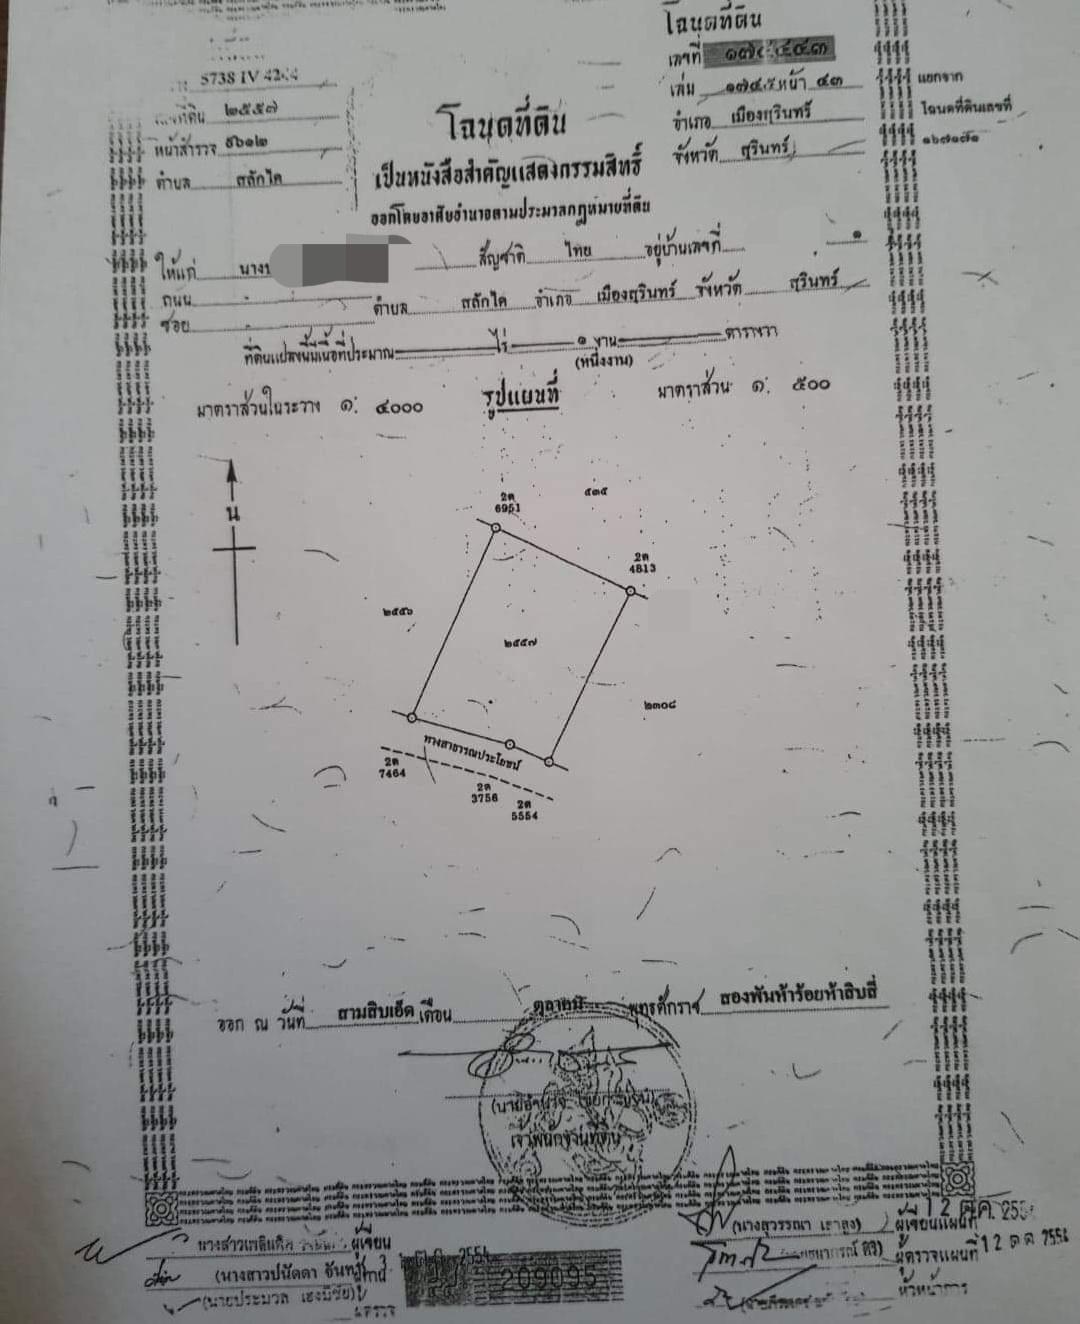 โฉนดที่ดิน
เลขที่
เล่ม ๑๗๔๕ หน้า ๔๓
อำเภอ เมืองสุรินทร์
จังหวัด สุรินทร์
แยกจาก
โฉนดที่ดินเลขที่
๑๖๗๑๗๑
5738 IV
ที่ดิน ๒๕๕๗
หน้าสำรวจ ๕๖๑๒
ตำบล สลักได
โฉนดที่ดิน
เป็นหนังสือสำคัญแสดงกรรมสิทธิ์
ออกโดยอาศัยอำนาจตามประมวลกฎหมายที่ดิน
ให้แก่ นาง สัญชาติ ไทย อยู่บ้านเลขที่ ๑
ถนน ตำบล สลักได อำเภอ เมืองสุรินทร์ จังหวัด สุรินทร์
ซอย
ที่ดินแปลงนี้มีเนื้อที่ประมาณ ไร่ ๑ งาน ตารางวา
(หนึ่งงาน)
มาตราส่วนในระวาง ๑: ๔๐๐๐ รูปแผนที่ มาตราส่วน ๑: ๕๐๐
น
2ด
6951
๕๓๕
2ด
4813
๒๕๕๖
๒๕๕๗
๒๓๐๘
ทางสาธารณประโยชน์
2ด
7464
2ด
3756
2ด
5554
ออก ณ วันที่ สามสิบเอ็ด เดือน ตุลาคม พุทธศักราช สองพันห้าร้อยห้าสิบสี่
เจ้าพนักงานที่ดิน
(นางสุวรรณา เธาสูง) ผู้เขียนแผนที่ 12 ต.ค. 255
ผู้ตรวจแผนที่ 12 ต.ค. 2554
หัวหน้าการ
นางสาว ผู้เขียน
(นางสาวปนัดดา
(นายประมวล เฮงมีชัย)
209095